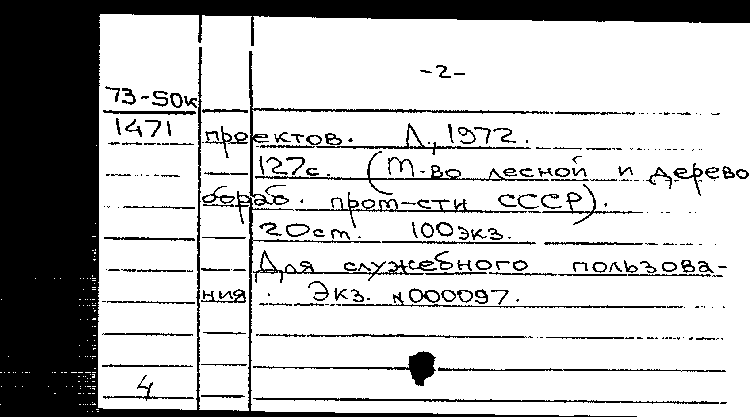 -2-
73-50к
1471 проектов. Л., 1972.
127с. (М-во лесной и дерево
обраб. пром-сти СССР).
20см. 100экз.
Для служебного пользова-
ния. Экз. N000097.
4